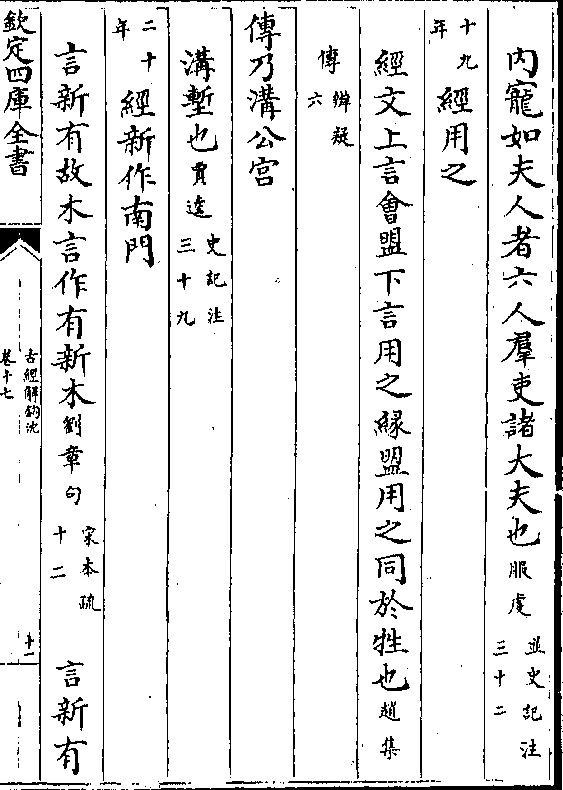 內寵如夫人者六人羣吏諸大夫也服虔並史記注三十二
十九年經用之
經文上言會盟下言用之緣盟用之同於牲也趙集傳辨疑六
傳乃溝公宫
溝塹也賈逵史記注三十九
二十年經新作南門
言新有故木言作有新木劉章句宋本疏十二 言新有
欽定四庫全書
古經解鉤沈
卷十七
十一